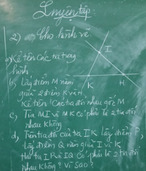 Luyện tập
2) Cho hình vẽ
a) Kể tên các tia trong hình
I
b) Lấy điểm M nằm giữa 2 điểm K và H
K H
Kể tên 1 các tia đối nhau gốc M
c) Tia MI và MK có phải là 2 tia đối nhau không
d) Trên tia đối của tia IK lấy điểm P, lấy điểm Q nằm giữa I và K
Hỏi tia IP và IQ có phải là 2 tia đối nhau không? Vì sao?